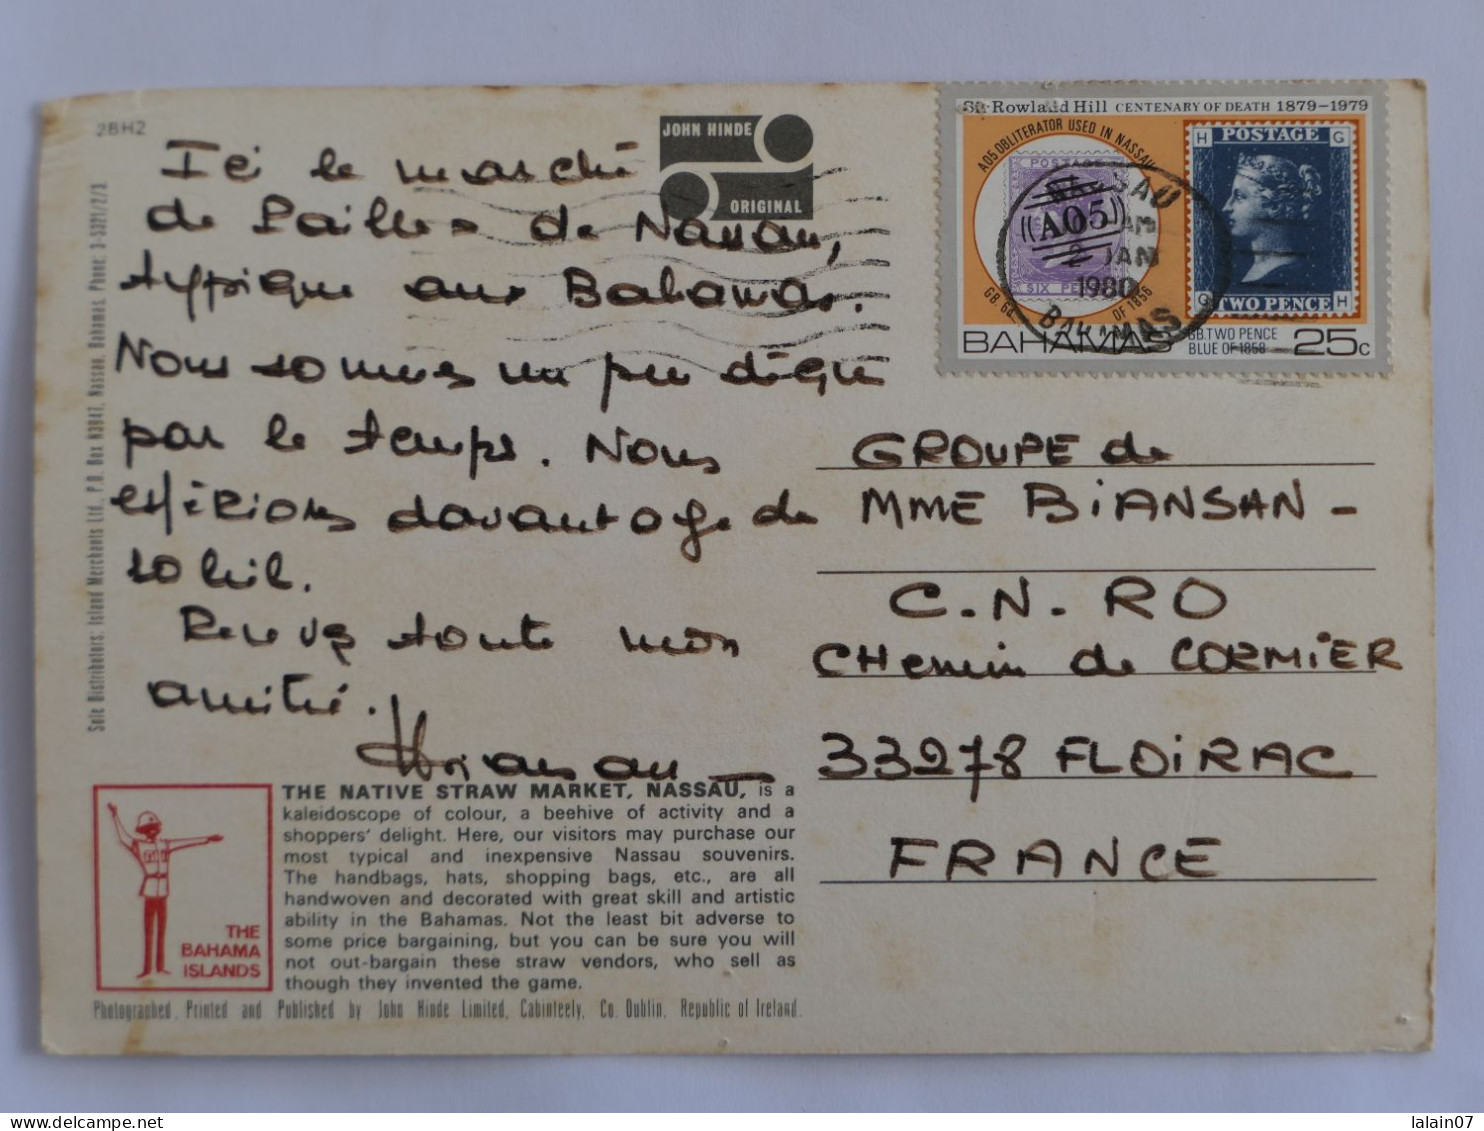 2BH2
JOHN HINDE
ORIGINAL
Sir Rowland Hill CENTENARY OF DEATH 1879-1979
A05 OBLITERATOR USED IN NASSAU
POSTAGE
A05
SIX PE
GB 6d
OF 1856
H G
POSTAGE
TWO PENCE
G H
BAHAMAS
GB.TWO PENCE
BLUE OF 1858
25c
NASSAU
2 JAN
1980
BAHAMAS
Ici le marché
de Pailles de Nassau,
typique aux Bahamas.
Nous sommes un peu déçus
par le temps. Nous
espérions davantage de
soleil.
Recevez toute mon
amitié.
GROUPE de
MME BiANSAN -
C.N. RO
CHemin de CORMiER
33278 FLOiRAC
FRANCE
Sole Distributors: Island Merchants Ltd., P.O. Box N3947, Nassau, Bahamas. Phone: 3-5321/2/3
THE BAHAMA ISLANDS
THE NATIVE STRAW MARKET, NASSAU, is a
kaleidoscope of colour, a beehive of activity and a
shoppers' delight. Here, our visitors may purchase our
most typical and inexpensive Nassau souvenirs.
The handbags, hats, shopping bags, etc., are all
handwoven and decorated with great skill and artistic
ability in the Bahamas. Not the least bit adverse to
some price bargaining, but you can be sure you will
not out-bargain these straw vendors, who sell as
though they invented the game.
Photographed, Printed and Published by John Hinde Limited, Cabinteely, Co. Dublin, Republic of Ireland.
lalain07